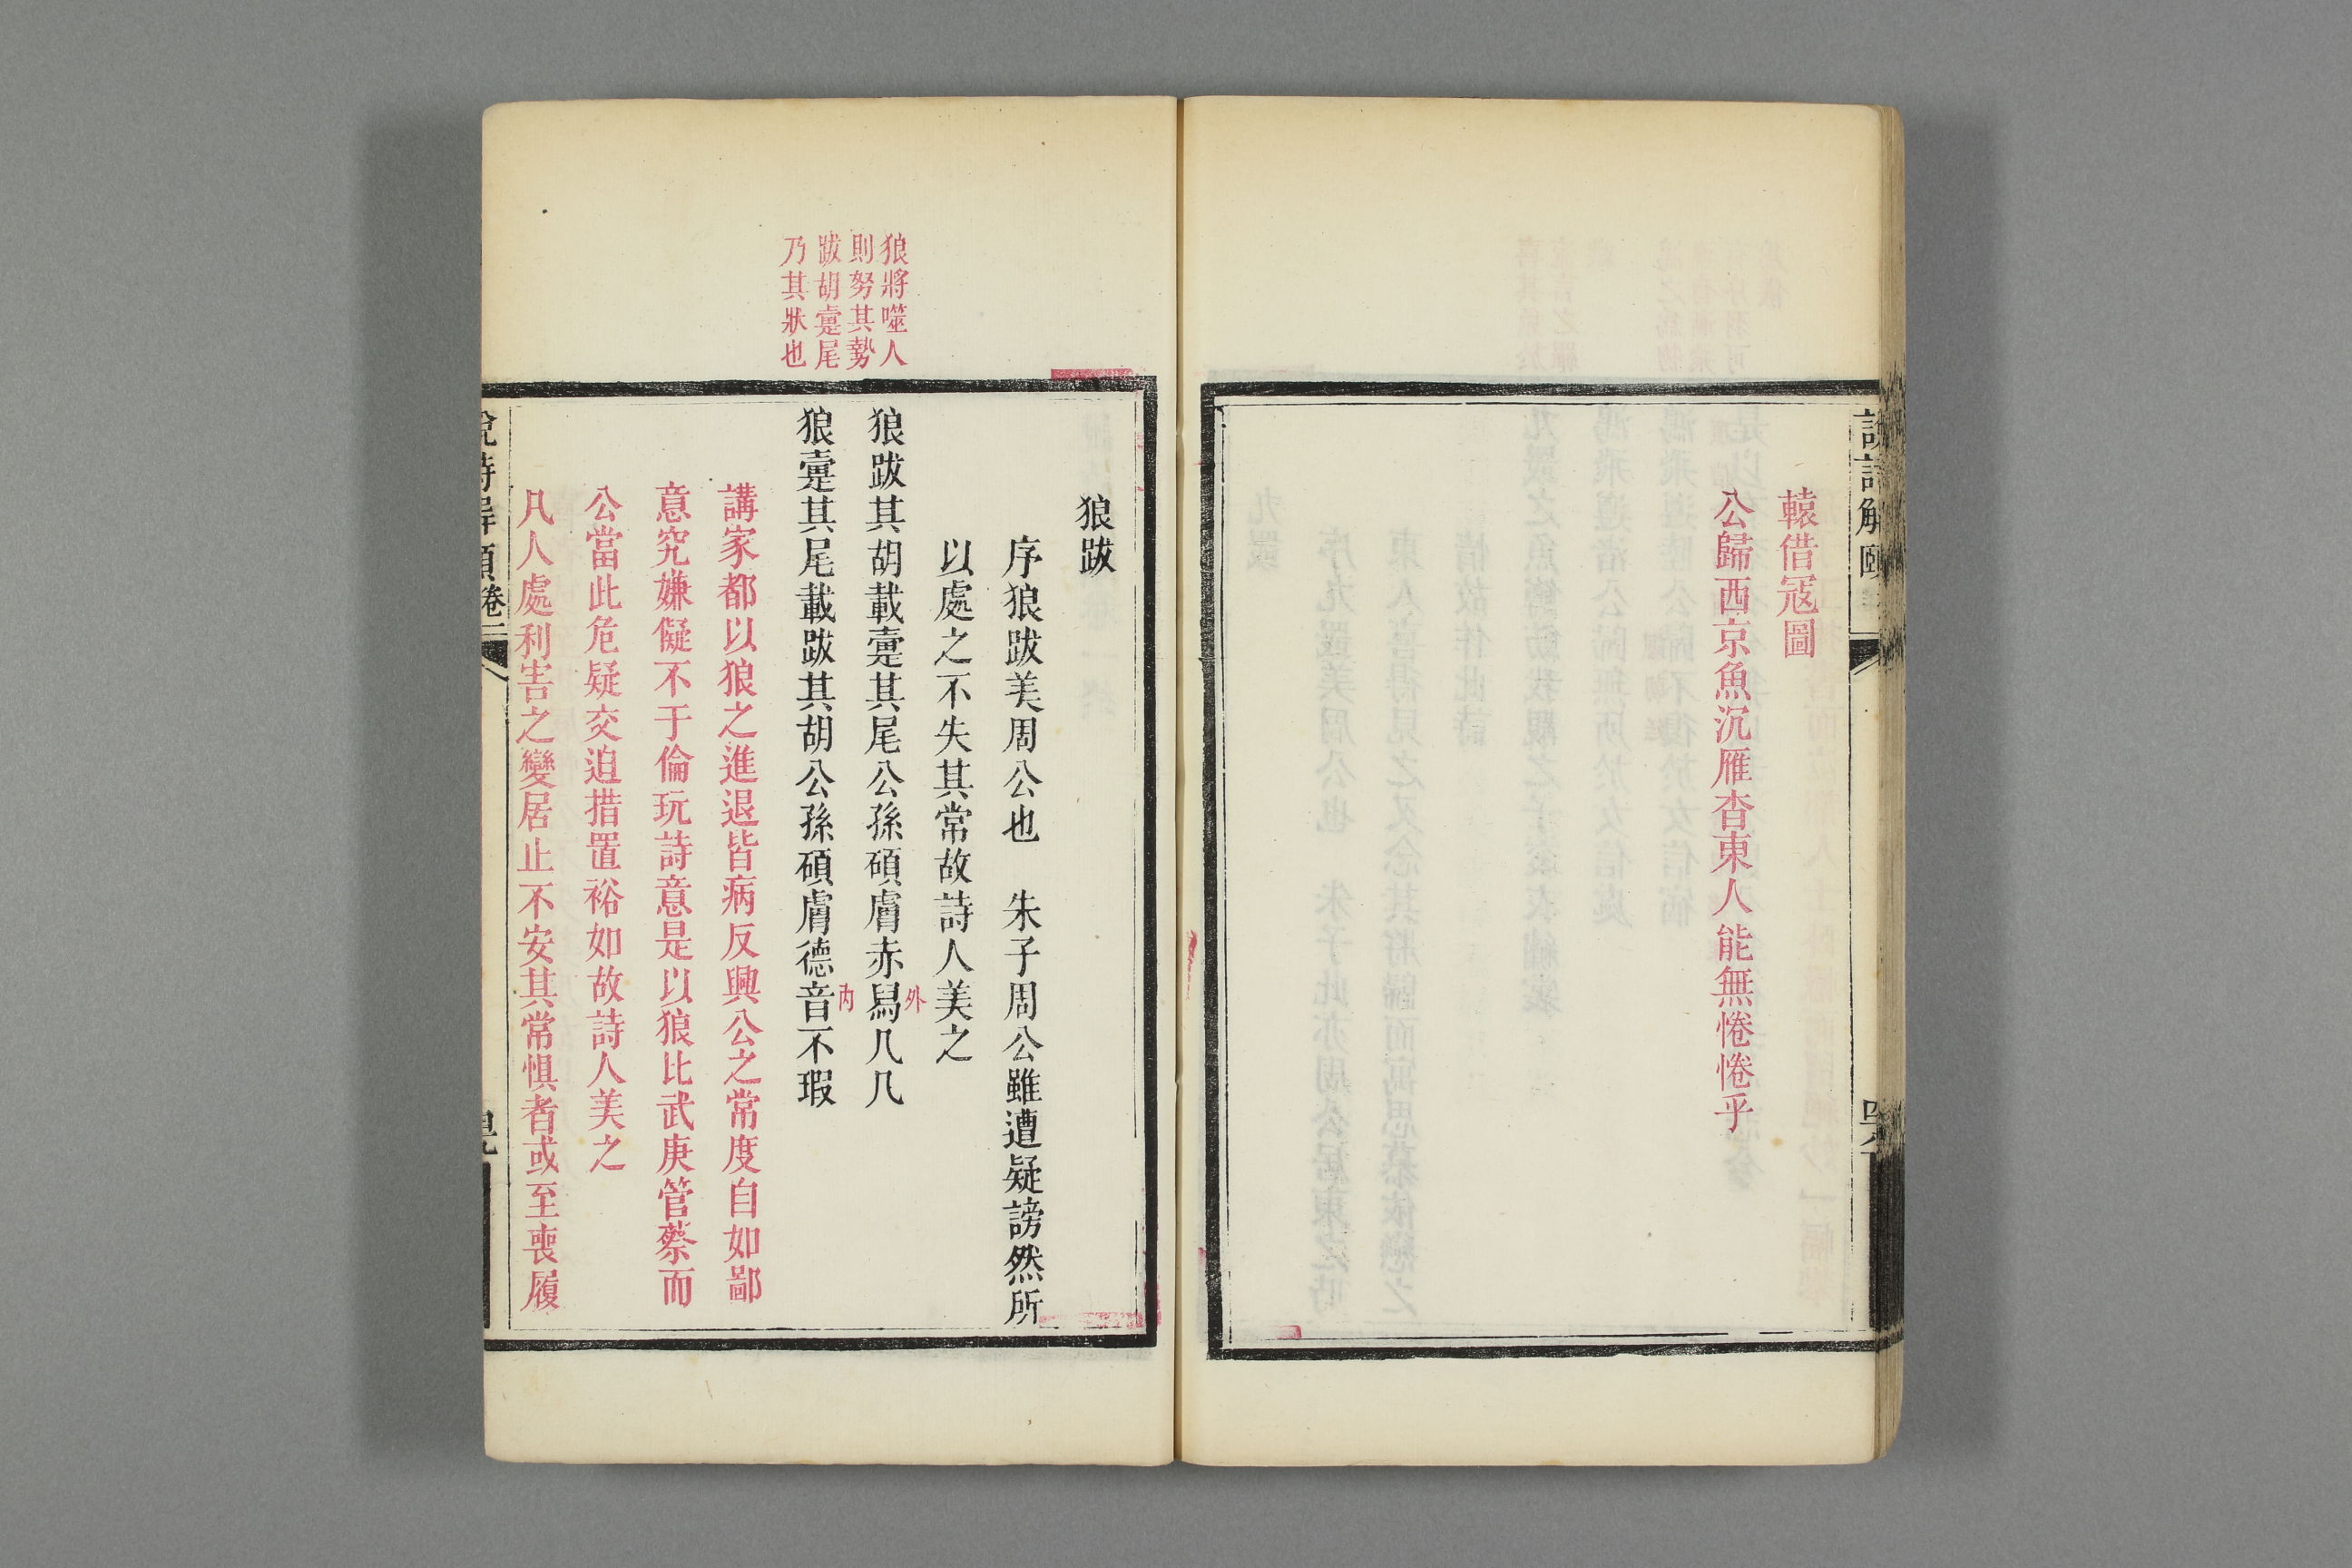 轅借冦圖
公歸西京魚沉雁杳東人能無惓惓乎
說詩解頤
狼將噬人
則努其勢
跋胡疐尾
乃其狀也
狼跋
序狼跋美周公也　朱子周公雖遭疑謗然所
以處之不失其常故詩人美之
狼跋其胡載疐其尾公孫碩膚赤舄几几
外
狼疐其尾載跋其胡公孫碩膚德音不瑕
內
講家都以狼之進退皆病反興公之常度自如鄙
意究嫌儗不于倫玩詩意是以狼比武庚管蔡而
公當此危疑交迫措置裕如故詩人美之
凡人處利害之變居止不安其常惧者或至喪履
說詩解頤卷二